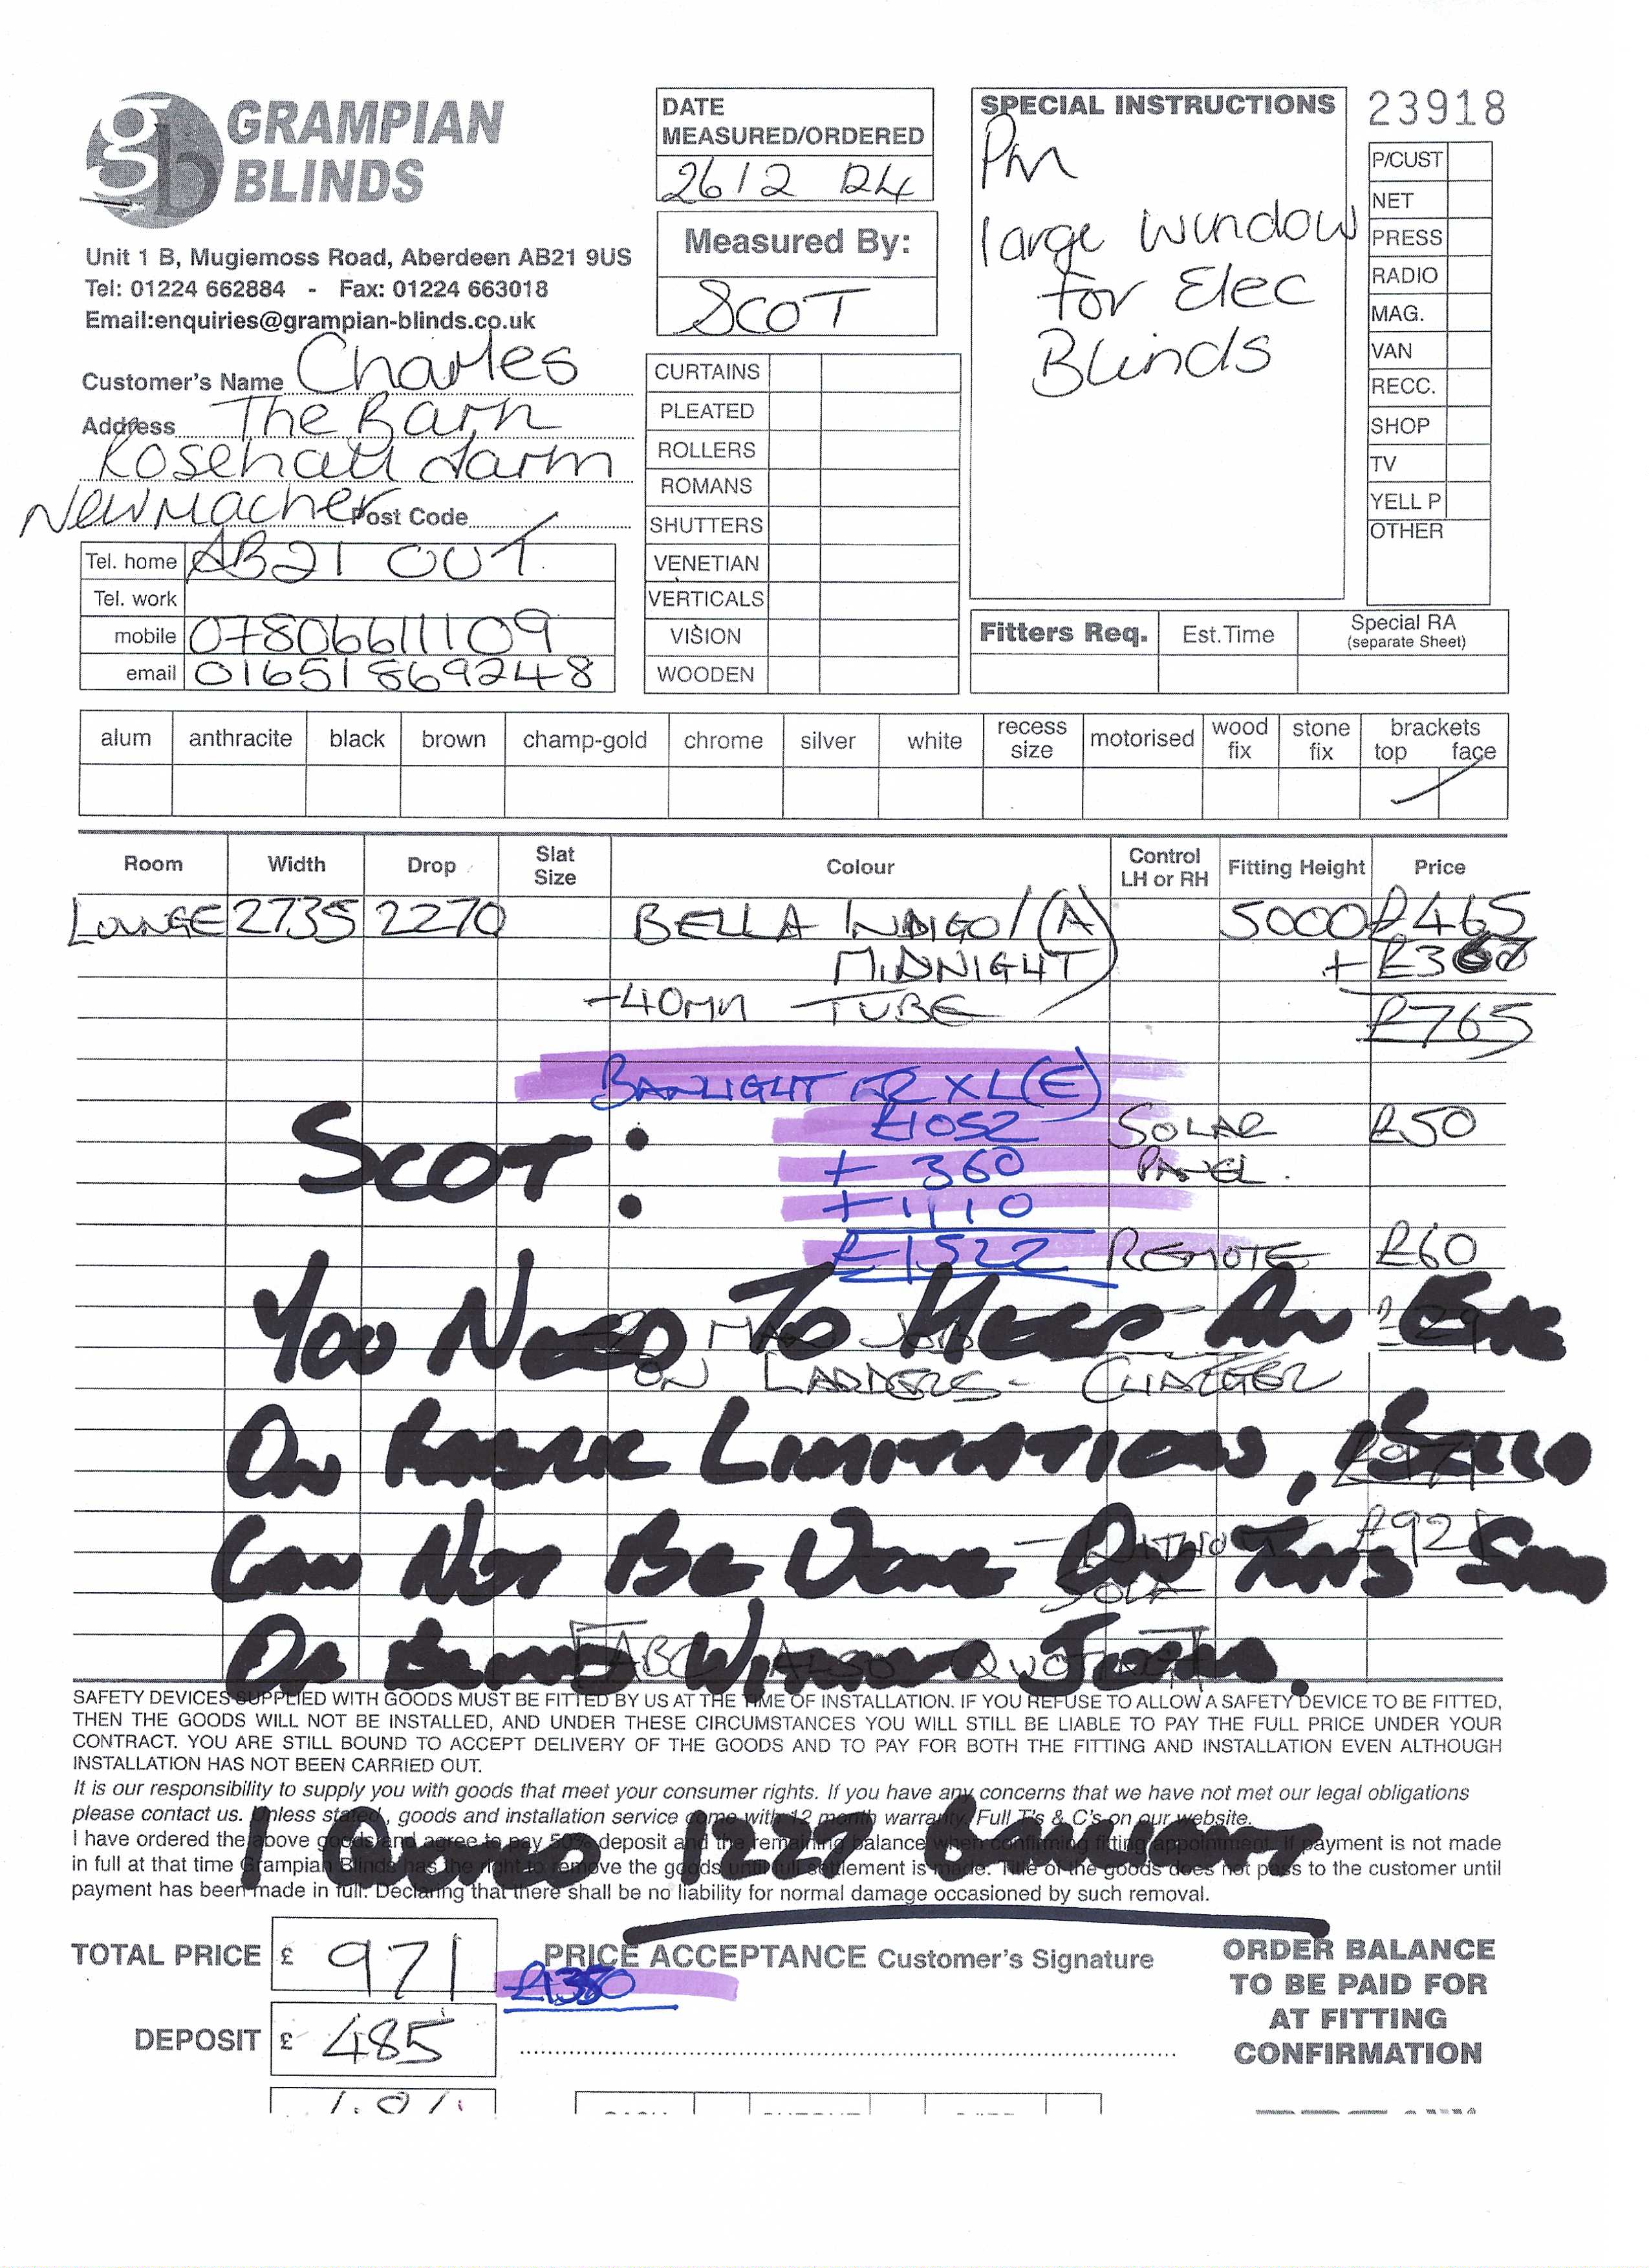 GRAMPIAN
BLINDS
Unit 1 B, Mugiemoss Road, Aberdeen AB21 9US
Tel: 01224 662884 - Fax: 01224 663018
Email:enquiries@grampian-blinds.co.uk
Customer's Name Charles
Address The Barn
Rosehall farm
Newmacher Post Code
Tel. home AB21 OUT
Tel. work
mobile 07806611109
email 01651869248
DATE
MEASURED/ORDERED
26/2
Measured By:
SCOT
CURTAINS
PLEATED
ROLLERS
ROMANS
SHUTTERS
VENETIAN
VERTICALS
VISION
WOODEN
SPECIAL INSTRUCTIONS
Pm
large window
for Elec
Blinds
23918
P/CUST
NET
PRESS
RADIO
MAG.
VAN
RECC.
SHOP
TV
YELL P
OTHER
Fitters Req. Est.Time Special RA
(separate Sheet)
alum anthracite black brown champ-gold chrome silver white recess size motorised wood fix stone fix brackets top face
Room Width Drop Slat Size Colour Control LH or RH Fitting Height Price
LOUNGE 2735 2270 BELLA INDIGO/(A) 5000 £465
MIDNIGHT + £300
-40mm TUBE £765
BANLIGHT XL(E)
£1052 SOLAR £50
SCOT: + 360 PANEL.
+ 110
£1522 REMOTE £60
YOU NEED TO KEEP AN EYE
ON LADDERS - CHARGER
ON FABRIC LIMITATIONS, BELLA
£92
CAN NOT BE DONE ON THIS SIZE
OF BLIND WITHOUT JOINS.
ABC ALSO QUOTING
SAFETY DEVICES SUPPLIED WITH GOODS MUST BE FITTED BY US AT THE TIME OF INSTALLATION. IF YOU REFUSE TO ALLOW A SAFETY DEVICE TO BE FITTED,
THEN THE GOODS WILL NOT BE INSTALLED, AND UNDER THESE CIRCUMSTANCES YOU WILL STILL BE LIABLE TO PAY THE FULL PRICE UNDER YOUR
CONTRACT. YOU ARE STILL BOUND TO ACCEPT DELIVERY OF THE GOODS AND TO PAY FOR BOTH THE FITTING AND INSTALLATION EVEN ALTHOUGH
INSTALLATION HAS NOT BEEN CARRIED OUT.
It is our responsibility to supply you with goods that meet your consumer rights. If you have any concerns that we have not met our legal obligations
please contact us. Unless stated, goods and installation service come with 12 month warranty. Full T's & C's on our website.
I have ordered the above goods and agree to pay 50% deposit and the remaining balance when confirming fitting appointment. If payment is not made
in full at that time Grampian Blinds has the right to remove the goods until full settlement is made. Title of the goods does not pass to the customer until
payment has been made in full. Declaring that there shall be no liability for normal damage occasioned by such removal.
TOTAL PRICE £ 971
PRICE ACCEPTANCE Customer's Signature
£1350
DEPOSIT £ 485
ORDER BALANCE
TO BE PAID FOR
AT FITTING
CONFIRMATION